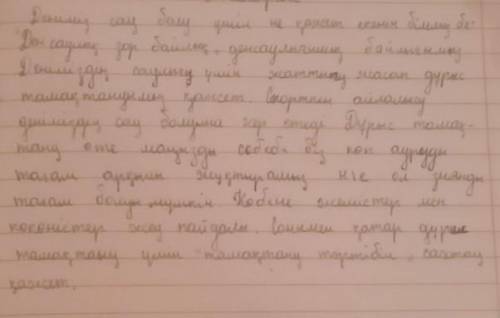 Денеміз сау болу үшін не қажет екенін білеміз бе?
Денсаулық зор байлық, денсаулығының байлығымыз
Денеміздің саулығы үшін жаттығу жасап дұрыс
тамақтануымыз қажет. Спортпен айналысу
денеміздің сау болуына әсер етеді Дұрыс тамақ-
тану өте маңызды себебі біз көп ауруды
тағам арқылы жұқтырамыз не ол зиянды
тағам болуы мүмкін Көбіне жемістер мен
көкөністер жеу пайдалы. Сонымен қатар дұрыс
тамақтану үшін тамақтану тәртібін, сақтау
қажет.